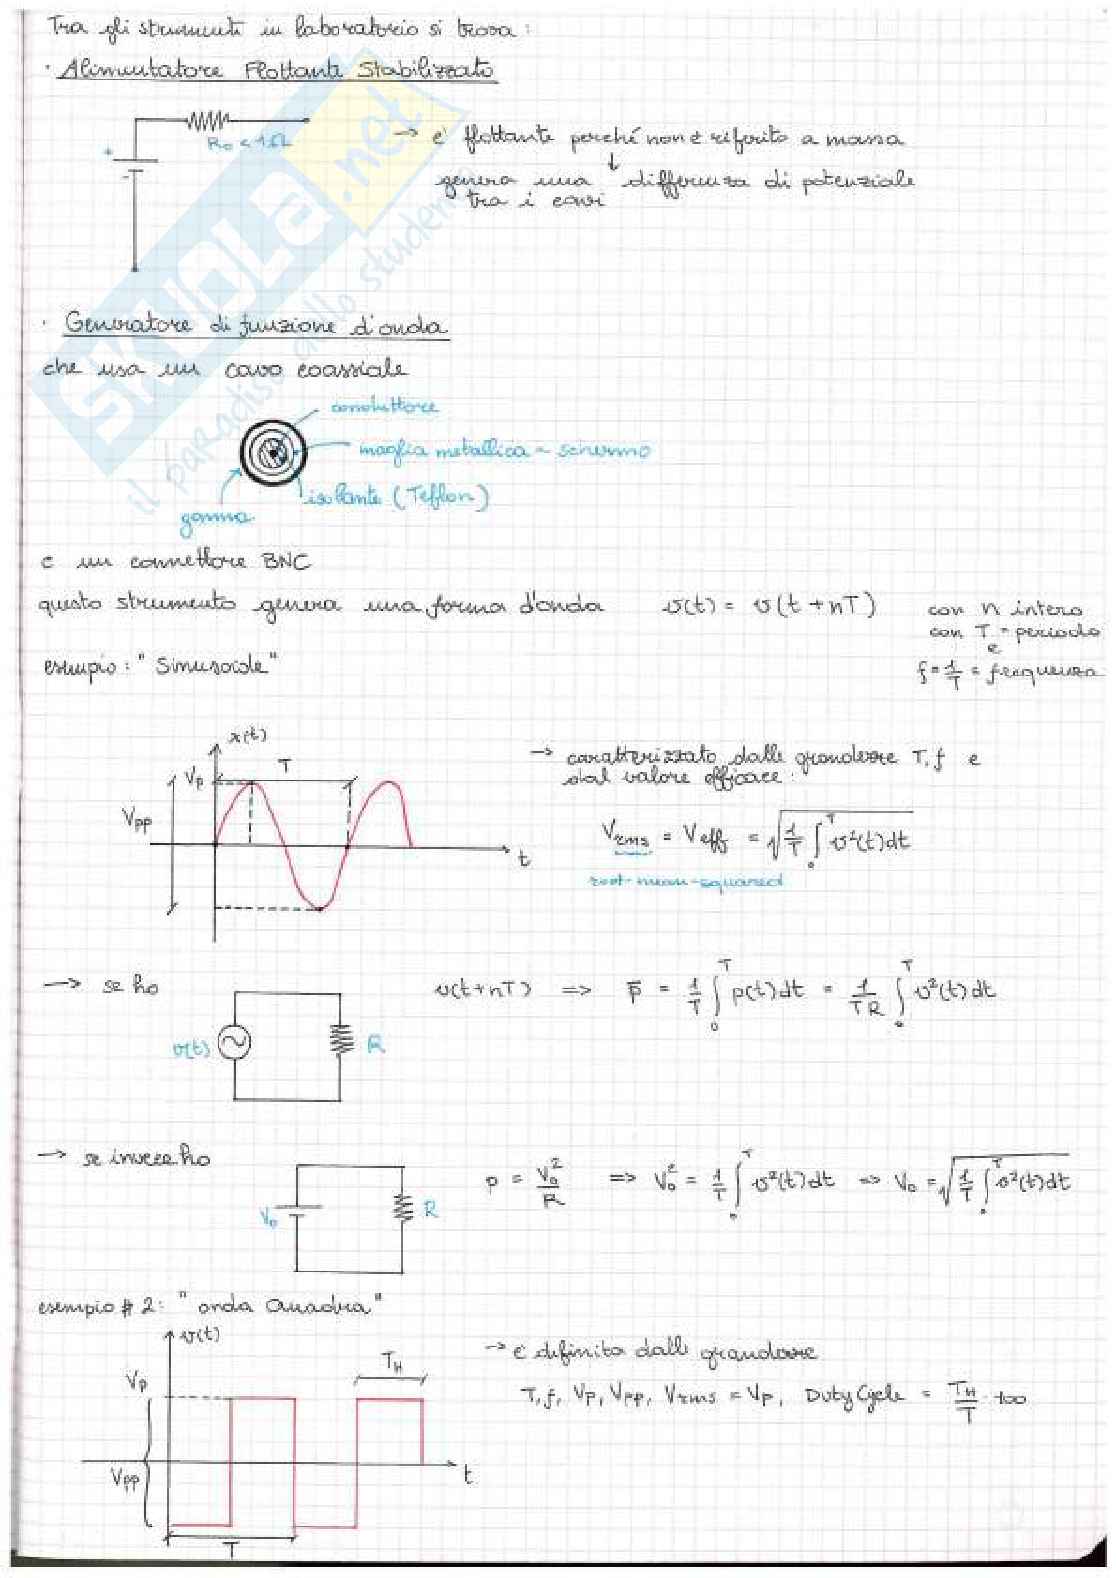 Tra gli strumenti in laboratorio si trova:
· Alimentatore Flottante Stabilizzato
R₀ < 1Ω
+
-
→ e' flottante perché non è riferito a massa
↓
genera una differenza di potenziale
tra i cavi
SKUOLA.net
il paradiso dello studente
· Generatore di funzione d'onda
che usa un cavo coassiale
conduttore
maglia metallica = schermo
isolante (Teflon)
gomma
e un connettore BNC
questo strumento genera una forma d'onda v(t) = v(t+nT) con n intero
con T = periodo
e
f = 1/T = frequenza
esempio: "Sinusoide"
x(t)
Vp
T
Vpp
t
→ caratterizzato dalle grandezze T, f e
dal valore efficace:
Vrms = Veff = √(1/T ∫₀ᵀ v²(t)dt)
root-mean-squared
→ se ho
v(t)
R
v(t+nT) => p̄ = 1/T ∫₀ᵀ p(t)dt = 1/TR ∫₀ᵀ v²(t)dt
→ se invece ho
V₀
R
p = V₀²/R => V₀² = 1/T ∫₀ᵀ v²(t)dt => V₀ = √(1/T ∫₀ᵀ v²(t)dt)
esempio # 2: "onda Quadra"
v(t)
Vp
TH
Vpp
t
T
→ è definita dalle grandezze
T, f, Vp, Vpp, Vrms = Vp, Duty Cycle = TH/T · 100